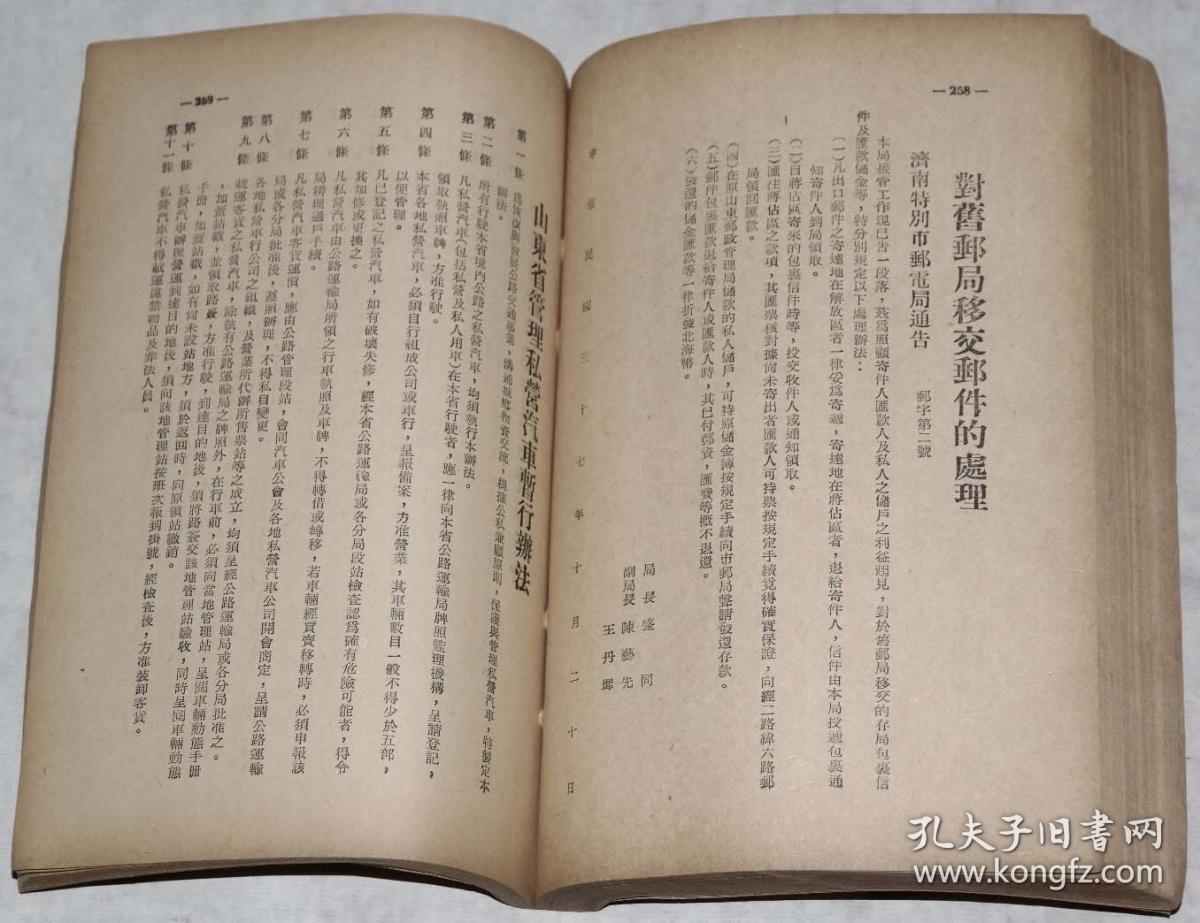 — 258 —
對舊郵局移交郵件的處理
濟南特別市郵電局通告
郵字第二號
本局接管工作現已告一段落，茲爲照顧寄件人匯款人及私人之儲戶之利益起見，對於舊郵局移交的存局包裹信
件及匯款儲金等，特分別規定以下處理辦法：
(一)凡出口郵件之寄達地在解放區者一律妥爲寄遞，寄達地在蔣佔區者，退給寄件人，信件由本局投遞包裹通
知寄件人到局領取。
(二)自蔣佔區寄來的包裹信件時等，投交收件人或通知領取。
(三)匯往蔣佔區之款項，其匯票核對據向未寄出者匯款人可持票按規定手續覓得確實保證，向經二路緯六路郵
局領回匯款。
(四)在原山東郵政管理局儲款的私人儲戶，可持原儲金簿按規定手續向市郵局聲請發還存款。
(五)郵件包裹匯款退給寄件人或匯款人時，其已付郵資，匯費等概不退還。
(六)發還的儲金匯款等一律折發北海幣。
局長 盛同
副局長 陳藝先
王丹
中華民國三十七年十月二十日
— 259 —
山東省管理私營汽車暫行辦法
第一條 爲恢復與發展公路交通事業，溝通城鄉物資交流，根據公私兼顧原則，保護與管理私營汽車，特製定本
辦法。
第二條 所有行駛本省境內公路之私營汽車，均須執行本辦法。
第三條 凡私營汽車(包括私營及私人用車)在本省行駛者，應一律向本省公路運輸局牌照監理機構，呈請登記，
領取執照車牌，方准行駛。
第四條 本省各地私營汽車，必須自行組成公司或車行，呈報備案，方准營業，其車輛數目一般不得少於五部，
以便管理。
第五條 凡已登記之私營汽車，如有破壞失修，經本省公路運輸局或各分局段站檢查認爲確有危險可能者，得令
其加修或更換之。
第六條 凡私營汽車由公路運輸局所領之行車執照及車牌，不得轉借或轉移，若車輛經買賣移轉時，必須申報該
局辦理過戶手續。
第七條 凡私營汽車客貨運價，應由公路管理段站，會同汽車公會及各地私營汽車公司開會商定，呈請公路運輸
局或各分局批准後，遵照辦理，不得私自變更。
第八條 各地私營車行公司之組織，及營業所代辦所售票站等之成立，均須呈經公路運輸局或各分局批准之。
第九條 載運客貨之私營汽車，除執有公路運輸局之牌照外，在行車前，必須向當地管理站，呈閱車輛動態手冊
，加蓋站戳，並領取路簽，方准行駛，到達目的地後，須將路簽交該地管理站驗收，同時呈閱車輛動態
手冊，加蓋站戳，如有尚未設站地方，須於返回時，向原領站繳銷。
第十條 私營汽車辦理營運到達目的地後，須向該地管理站按班次報到掛號，經檢查後，方准裝卸客貨。
第十一條 私營汽車不得載運違禁物品及非法人員。
孔夫子旧书网
www.kongfz.com